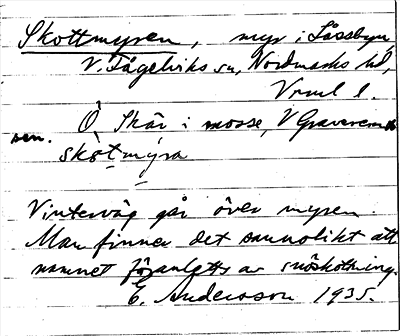 Skottmyren, myr i Låssbyn
V. Fågelviks sn, Nordmarks hd,
Vrml l.
Ö Skår i mosse, V Graverem
sen.
skotmýra
Vinterväg går över myren.
Man finner det sannolikt att
namnet föranletts av snöskottning.
E. Andersson 1935.